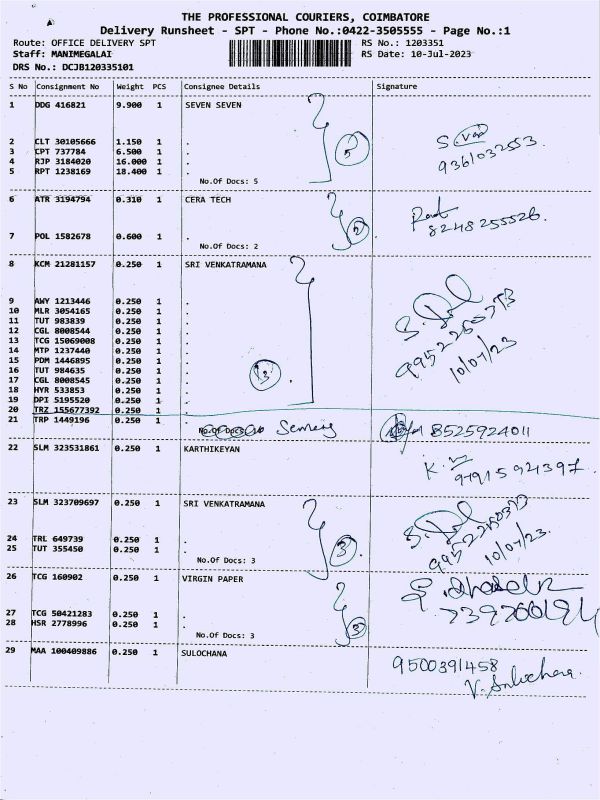 THE PROFESSIONAL COURIERS, COIMBATORE
Delivery Runsheet - SPT - Phone No.:0422-3505555 - Page No.:1
Route: OFFICE DELIVERY SPT RS No.: 1203351
Staff: MANIMEGALAI RS Date: 10-Jul-2023
DRS No.: DCJB120335101
S No Consignment No Weight PCS Consignee Details Signature
1 DDG 416821 9.900 1 SEVEN SEVEN
2 CLT 30105666 1.150 1 .
3 CPT 737784 6.500 1 .
4 RJP 3184020 16.000 1 .
5 RPT 1238169 18.400 1 .
No.Of Docs: 5
5
9361032553.
6 ATR 3194794 0.310 1 CERA TECH
7 POL 1582678 0.600 1 .
No.Of Docs: 2
2
8248255526.
8 KCM 21281157 0.250 1 SRI VENKATRAMANA
9 AWY 1213446 0.250 1 .
10 MLR 3054165 0.250 1 .
11 TUT 983839 0.250 1 .
12 CGL 8008544 0.250 1 .
13 TCG 15069008 0.250 1 .
14 MTP 1237440 0.250 1 .
15 PDM 1446895 0.250 1 .
16 TUT 984635 0.250 1 .
17 CGL 8008545 0.250 1 .
18 HYR 533853 0.250 1 .
19 DPI 5195520 0.250 1 .
20 TRZ 155677392 0.250 1 .
21 TRP 1449196 0.250 1 .
13
10/07/23
8525924011
22 SLM 323531861 0.250 1 KARTHIKEYAN
23 SLM 323709697 0.250 1 SRI VENKATRAMANA
24 TRL 649739 0.250 1 .
25 TUT 355450 0.250 1 .
No.Of Docs: 3
3
10/07/23.
26 TCG 160902 0.250 1 VIRGIN PAPER
27 TCG 50421283 0.250 1 .
28 HSR 2778996 0.250 1 .
No.Of Docs: 3
3
29 MAA 100409886 0.250 1 SULOCHANA
9500391458
V. Sulochana.